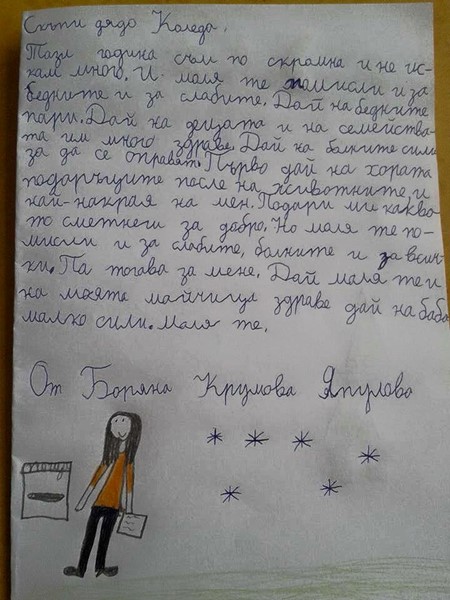 Скъпи дядо Коледа,
Тази година съм по скромна и не ис-
кам много. И маля те помисли и за
бедните и за слабите. Дай на бедните
пари. Дай на децата и на семейства-
та им много здраве. Дай на болните сили
за да се оправят. Първо дай на хората
подаръците после на животните, и
най-накрая на мен. Подари ми каква-
то сметнеш за добро. Но маля те по-
мисли и за слабите, болните и за всич-
ки. Па тогава за мене. Дай маля те и
на моята майчица здраве дай на баба
малко сили. Маля те.
От Боряна Крумова Япулова